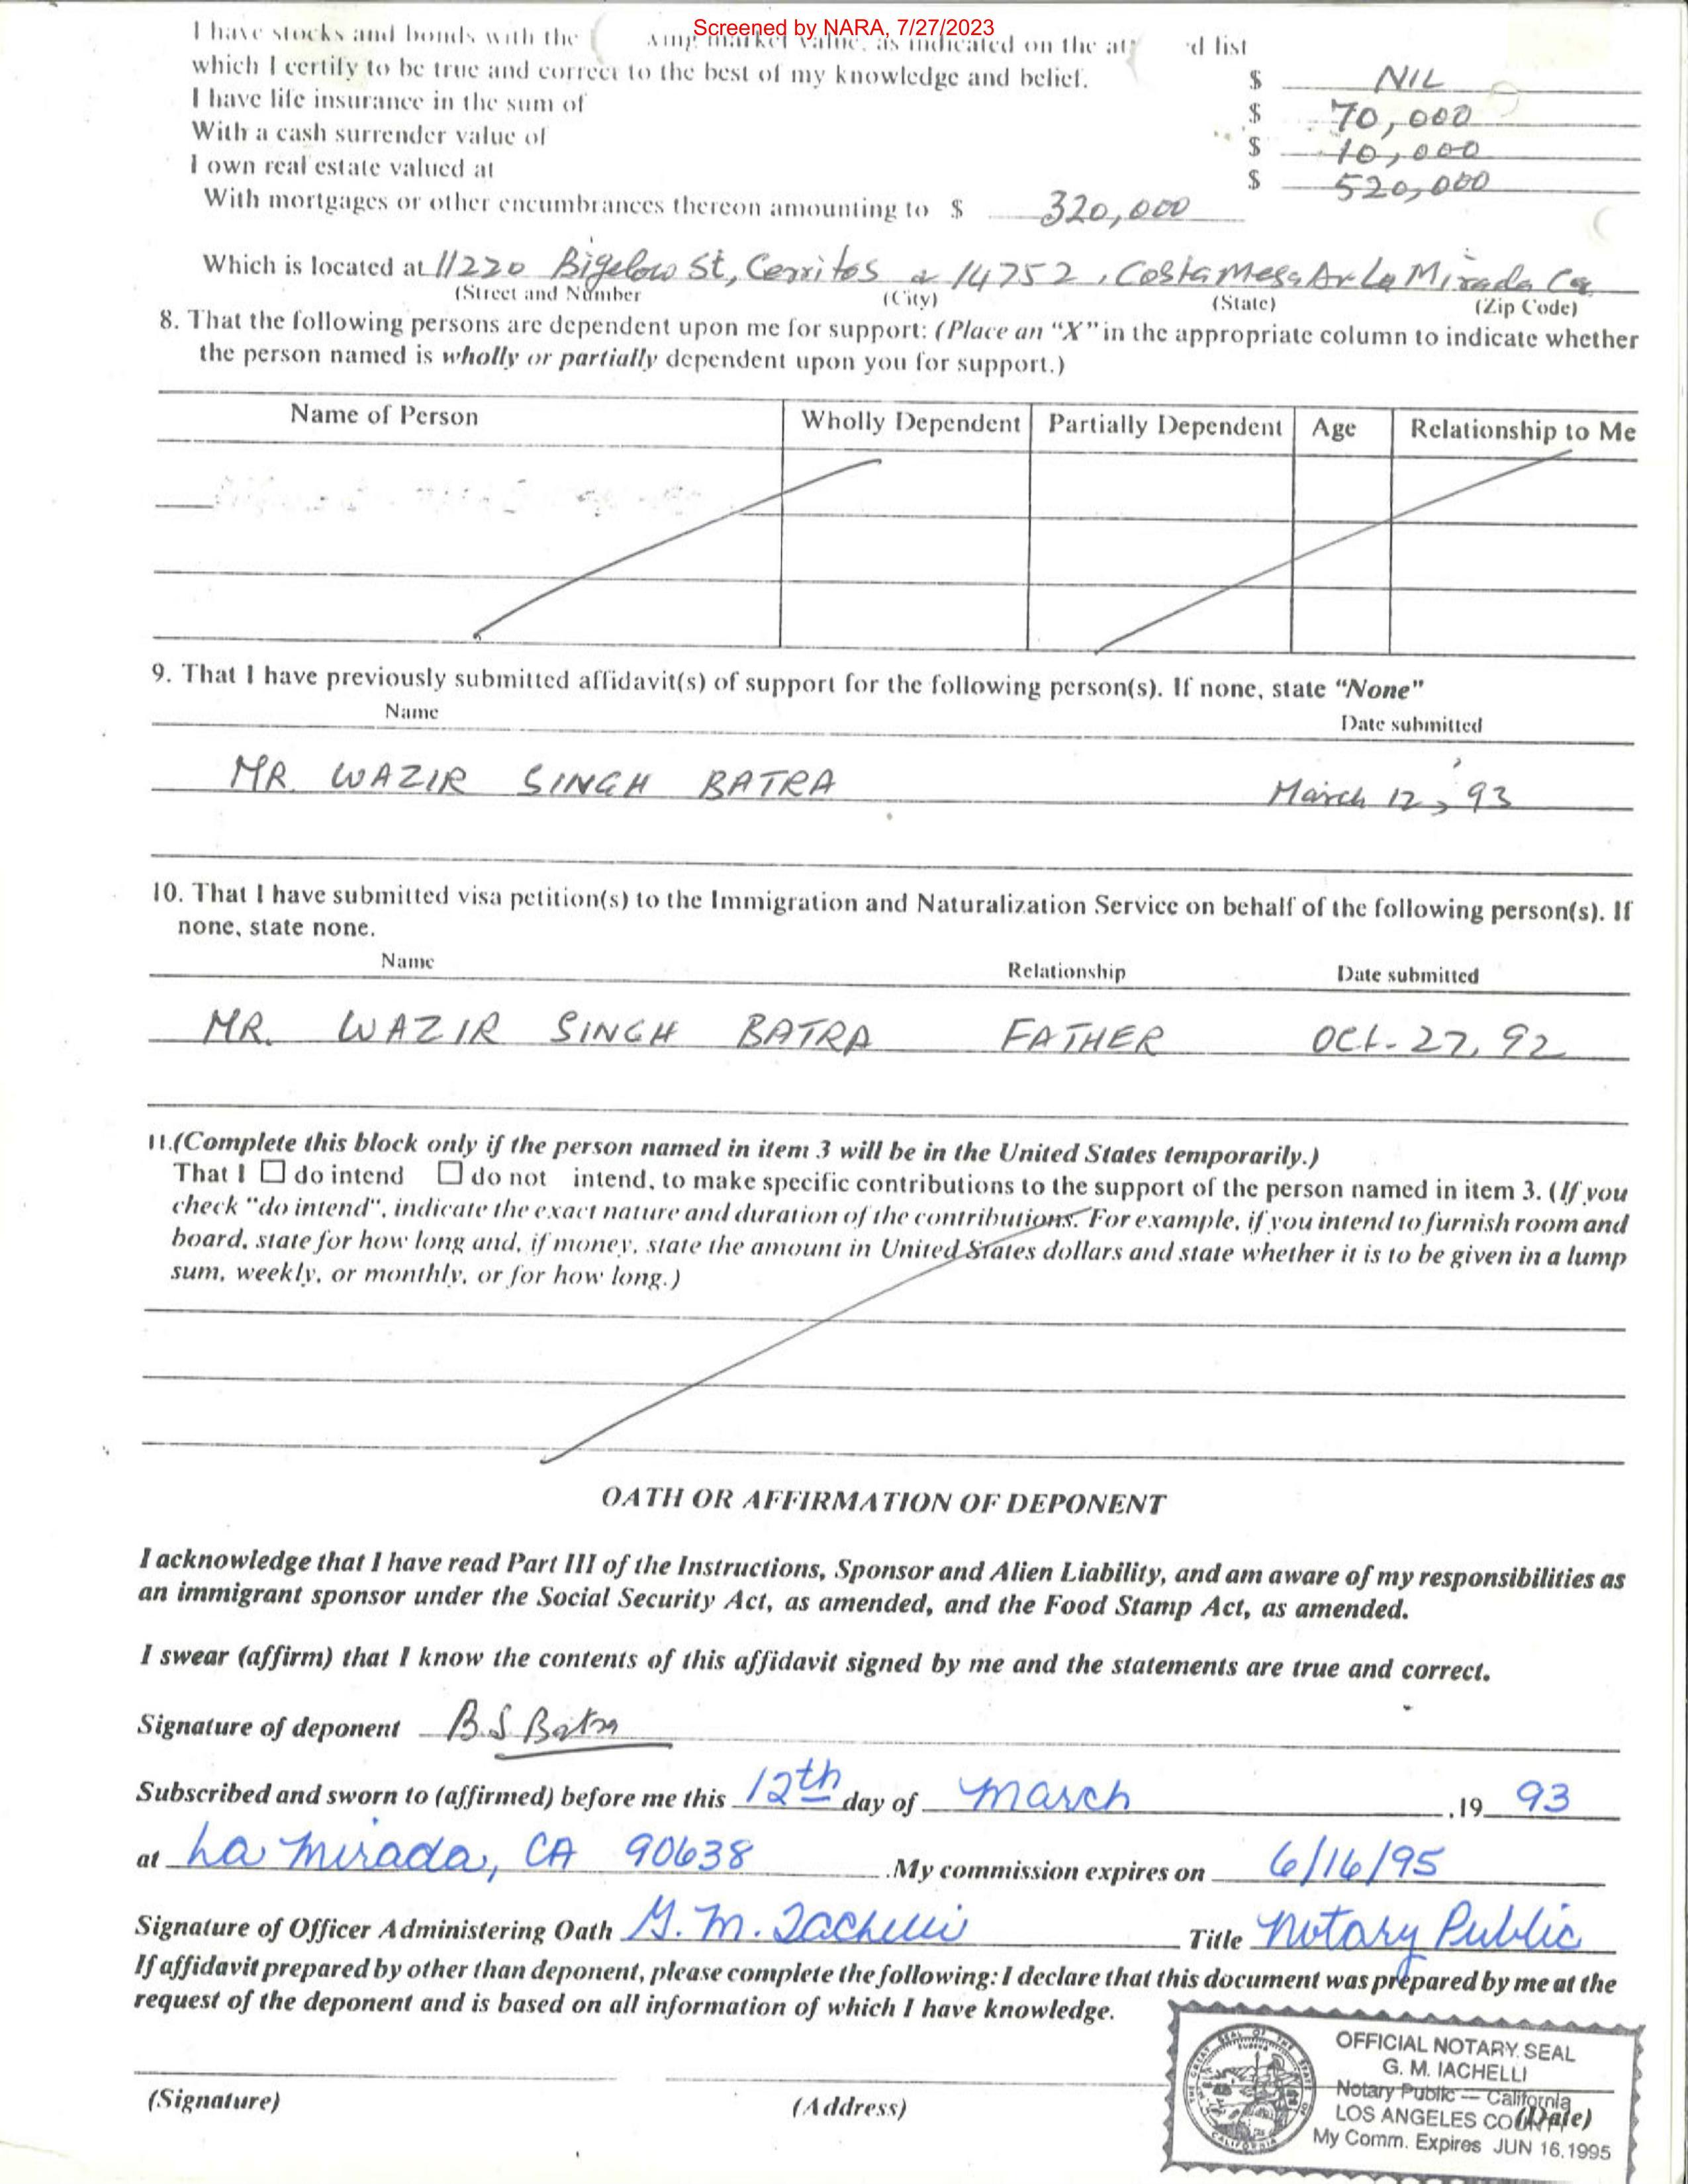 Screened by NARA, 7/27/2023
I have stocks and bonds with the market value, as indicated on the list
which I certify to be true and correct to the best of my knowledge and belief. $ NIL
I have life insurance in the sum of $ 70,000
With a cash surrender value of $ 10,000
I own real estate valued at $ 520,000
With mortgages or other encumbrances thereon amounting to $ 320,000
Which is located at 11220 Bigelow St, Cerritos & 14752, Costa Mesa Av La Mirada Ca
(Street and Number (City) (State) (Zip Code)
8. That the following persons are dependent upon me for support: (Place an "X" in the appropriate column to indicate whether
the person named is wholly or partially dependent upon you for support.)
Name of Person Wholly Dependent Partially Dependent Age Relationship to Me
9. That I have previously submitted affidavit(s) of support for the following person(s). If none, state "None"
Name Date submitted
MR. WAZIR SINGH BATRA March 12, 93
10. That I have submitted visa petition(s) to the Immigration and Naturalization Service on behalf of the following person(s). If
none, state none.
Name Relationship Date submitted
MR. WAZIR SINGH BATRA FATHER Oct. 27, 92
11.(Complete this block only if the person named in item 3 will be in the United States temporarily.)
That I ☐ do intend ☐ do not intend, to make specific contributions to the support of the person named in item 3. (If you
check "do intend", indicate the exact nature and duration of the contributions. For example, if you intend to furnish room and
board, state for how long and, if money, state the amount in United States dollars and state whether it is to be given in a lump
sum, weekly, or monthly, or for how long.)
OATH OR AFFIRMATION OF DEPONENT
I acknowledge that I have read Part III of the Instructions, Sponsor and Alien Liability, and am aware of my responsibilities as
an immigrant sponsor under the Social Security Act, as amended, and the Food Stamp Act, as amended.
I swear (affirm) that I know the contents of this affidavit signed by me and the statements are true and correct.
Signature of deponent B.S Batra
Subscribed and sworn to (affirmed) before me this 12th day of March ,19 93
at La Mirada, CA 90638 .My commission expires on 6/16/95
Signature of Officer Administering Oath G. M. Iachelli Title Notary Public
If affidavit prepared by other than deponent, please complete the following: I declare that this document was prepared by me at the
request of the deponent and is based on all information of which I have knowledge.
(Signature) (Address) (Date)
OFFICIAL NOTARY SEAL
G. M. IACHELLI
Notary Public — California
LOS ANGELES COUNTY
My Comm. Expires JUN 16,1995